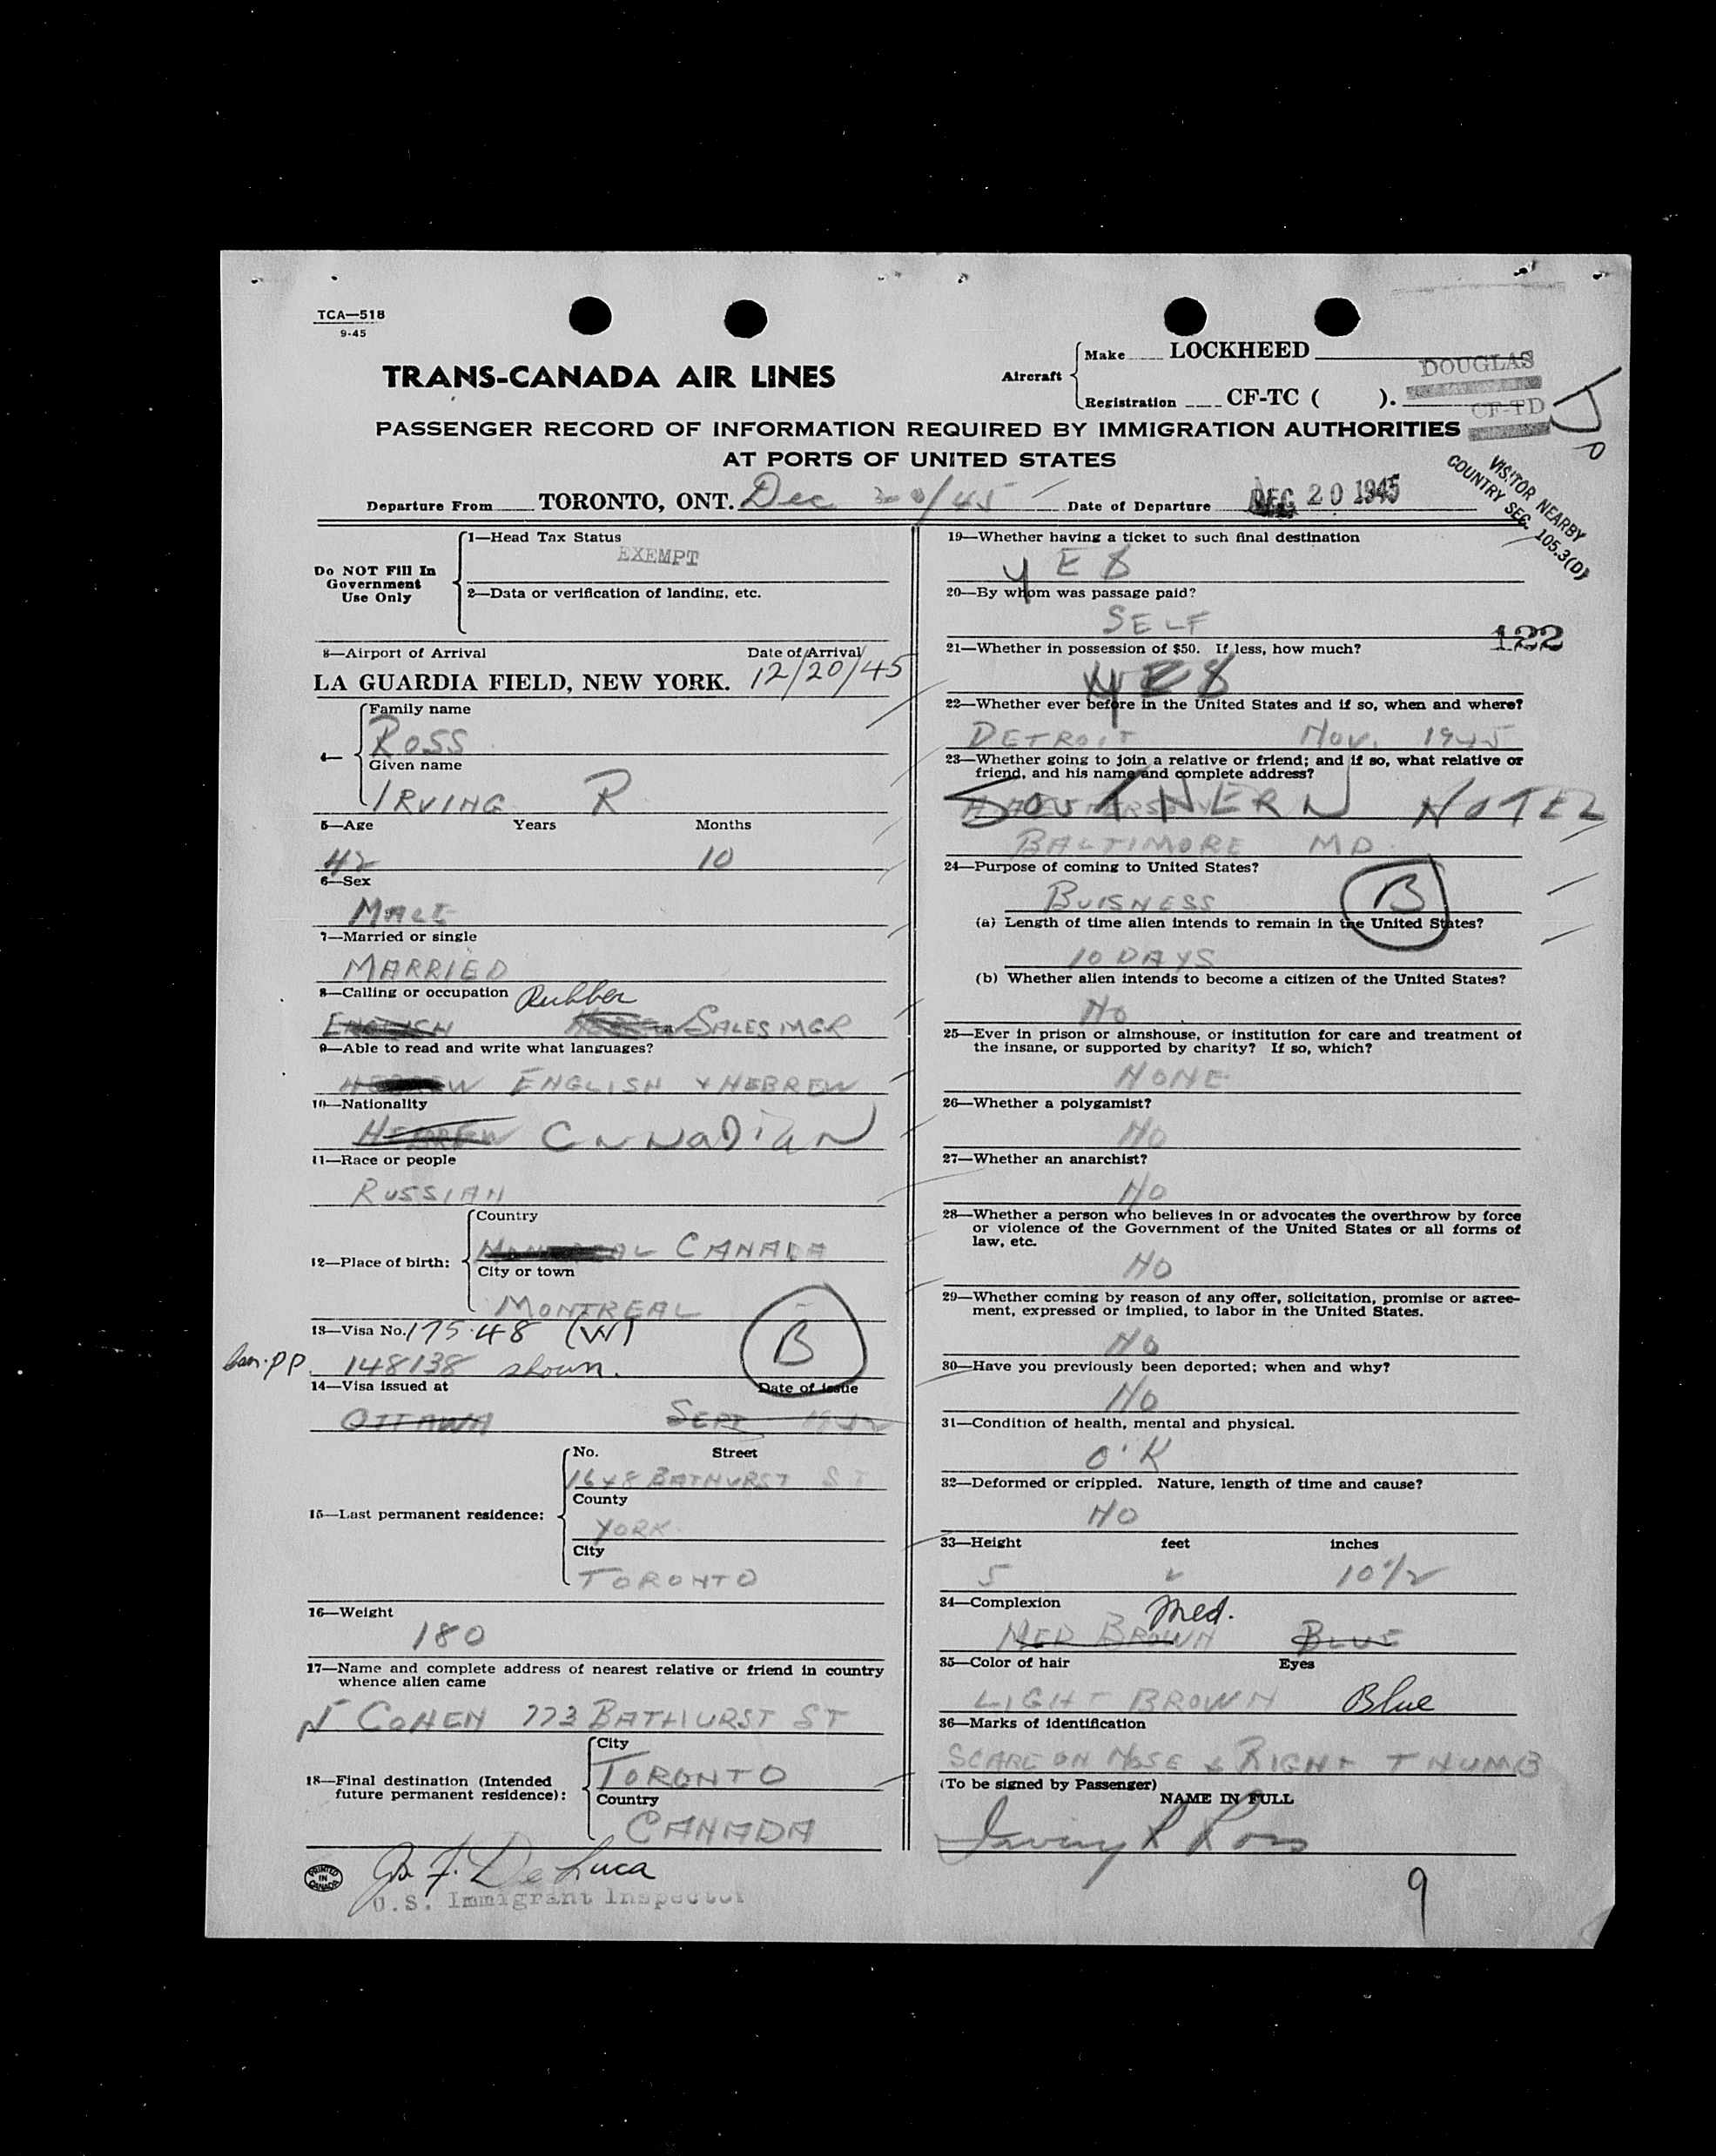 TCA—518
9-45
TRANS-CANADA AIR LINES
Aircraft
Make LOCKHEED
DOUGLAS
Registration CF-TC ( ).
CF-TD
PASSENGER RECORD OF INFORMATION REQUIRED BY IMMIGRATION AUTHORITIES
AT PORTS OF UNITED STATES
VISITOR NEARBY
COUNTRY SEC. 105.3(D)
Departure From TORONTO, ONT. Dec 20/45 Date of Departure DEC 20 1945
Do NOT Fill In
Government
Use Only
1—Head Tax Status
EXEMPT
2—Data or verification of landing, etc.
3—Airport of Arrival Date of Arrival
LA GUARDIA FIELD, NEW YORK. 12/20/45
4—
Family name
ROSS
Given name
IRVING R
5—Age Years Months
42 10
6—Sex
MALE
7—Married or single
MARRIED
8—Calling or occupation Rubber
ENGLISH SALES MGR
9—Able to read and write what languages?
HEBREW ENGLISH & HEBREW
10—Nationality
HEBREW CANADIAN
11—Race or people
RUSSIAN
12—Place of birth:
Country
MONTREAL CANADA
City or town
MONTREAL
13—Visa No. 175.48 (W)
Can. PP. 148138 shown.
B
14—Visa issued at Date of issue
OTTAWA SEPT
15—Last permanent residence:
No. Street
1648 BATHURST ST
County
YORK
City
TORONTO
16—Weight
180
17—Name and complete address of nearest relative or friend in country
whence alien came
N COHEN 773 BATHURST ST
18—Final destination (Intended
future permanent residence):
City
TORONTO
Country
CANADA
PRINTED
IN
CANADA
De Luca
U.S. Immigrant Inspector
19—Whether having a ticket to such final destination
YES
20—By whom was passage paid?
SELF
122
21—Whether in possession of $50. If less, how much?
YES
22—Whether ever before in the United States and if so, when and where?
DETROIT NOV. 1945
23—Whether going to join a relative or friend; and if so, what relative or
friend, and his name and complete address?
SOUTHERN HOTEL
BALTIMORE MD.
24—Purpose of coming to United States?
BUISNESS B
(a) Length of time alien intends to remain in the United States?
10 DAYS
(b) Whether alien intends to become a citizen of the United States?
NO
25—Ever in prison or almshouse, or institution for care and treatment of
the insane, or supported by charity? If so, which?
NONE
26—Whether a polygamist?
NO
27—Whether an anarchist?
NO
28—Whether a person who believes in or advocates the overthrow by force
or violence of the Government of the United States or all forms of
law, etc.
NO
29—Whether coming by reason of any offer, solicitation, promise or agree-
ment, expressed or implied, to labor in the United States.
NO
30—Have you previously been deported; when and why?
NO
31—Condition of health, mental and physical.
O'K
32—Deformed or crippled. Nature, length of time and cause?
NO
33—Height feet inches
5 10 1/2
34—Complexion Med.
MED BROWN BLUE
35—Color of hair Eyes
LIGHT BROWN Blue
36—Marks of identification
SCARE ON NOSE & RIGHT THUMB
(To be signed by Passenger)
NAME IN FULL
Irving R Ross
9